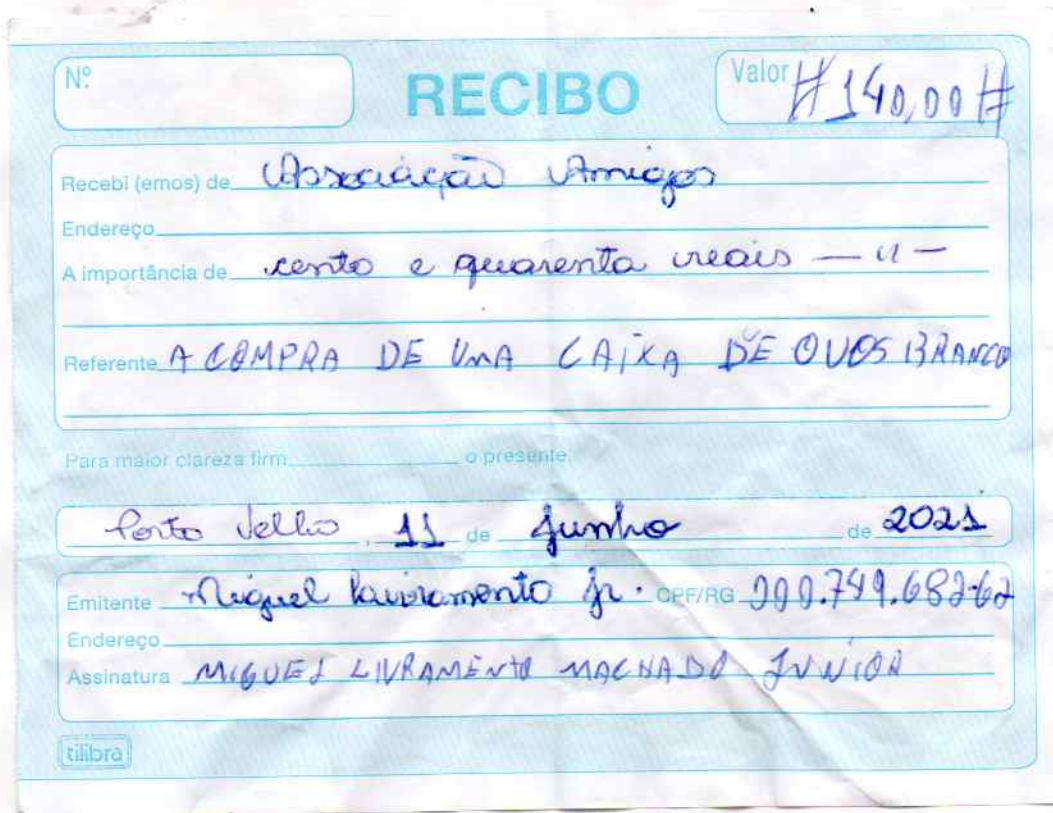 Nº
RECIBO
Valor #140,00#
Recebi (emos) de Associação Amigos
Endereço
A importância de cento e quarenta reais
Referente A COMPRA DE UMA CAIXA DE OVOS BRANCO
Para maior clareza firm o presente.
Porto Velho 11 de Junho de 2021
Emitente Miguel Livramento Jr. CPF/RG
Endereço
Assinatura MIGUEL LIVRAMENTO MACHADO JUNIOR
tilibra